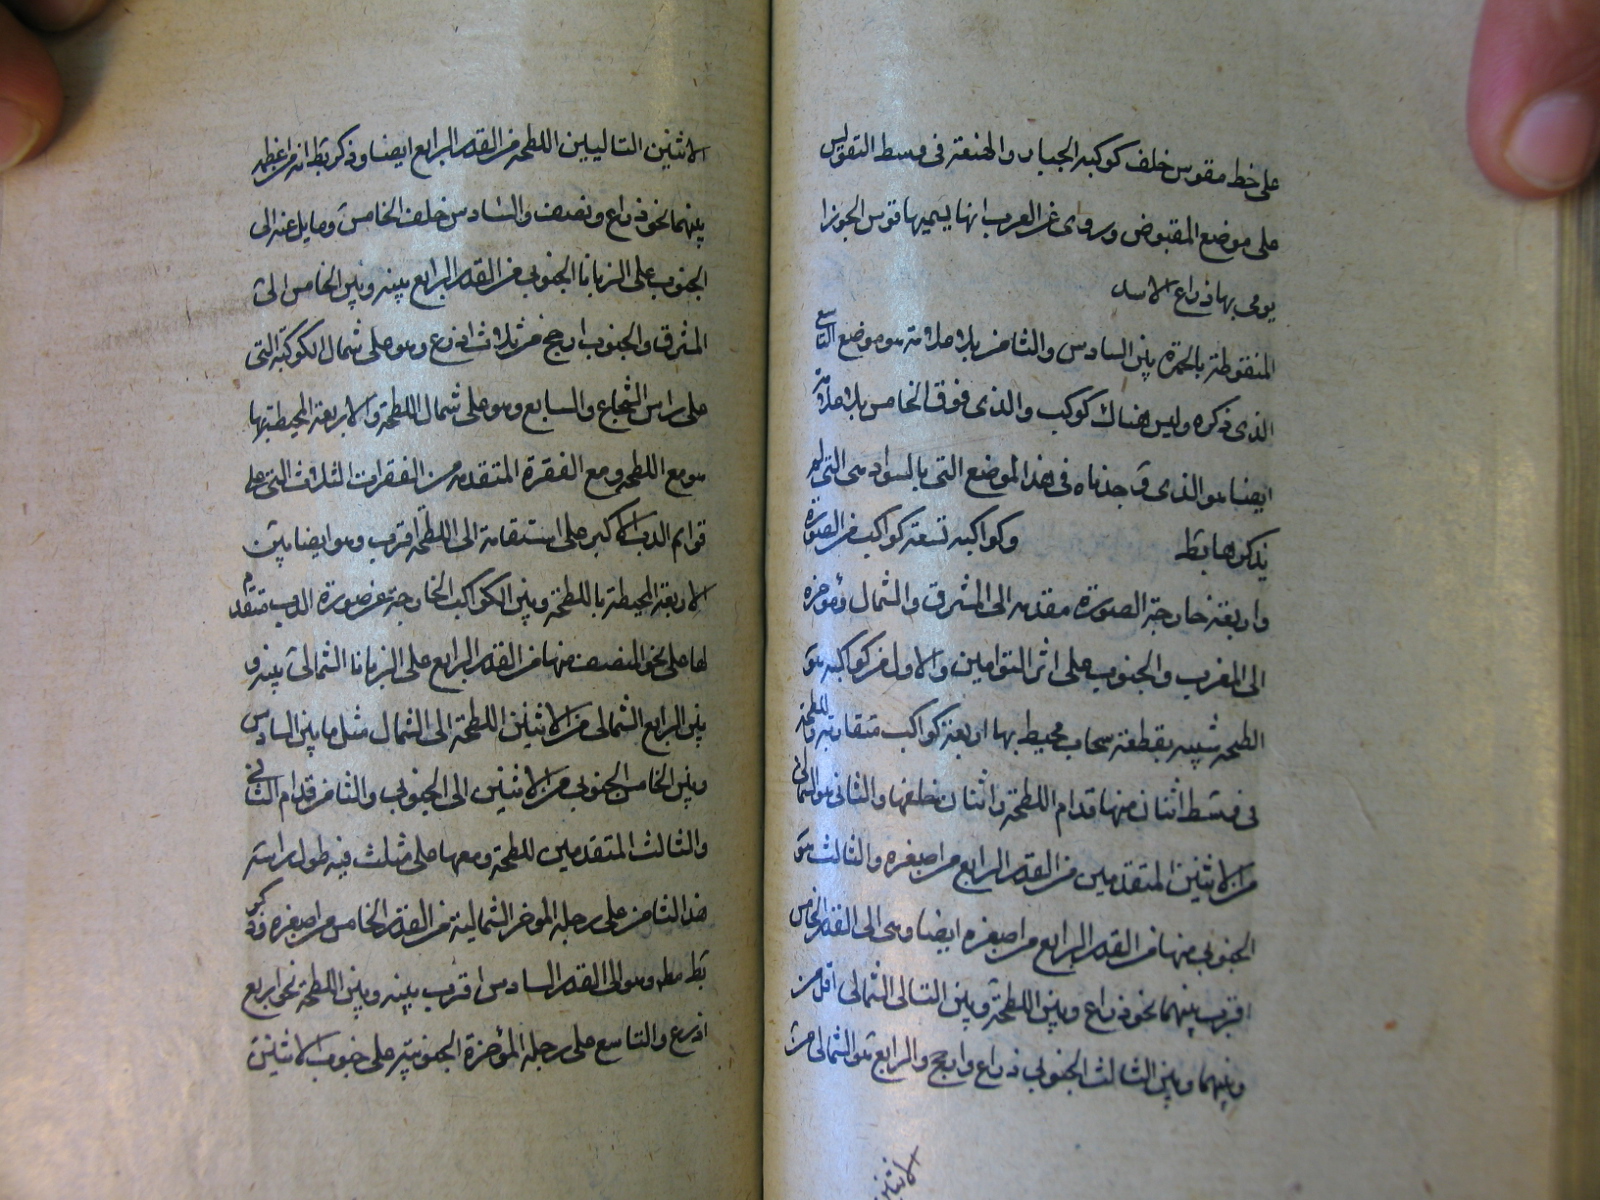 على خط مقوس خلف كوكبه الجبار والهنعة فى وسط التقويس
على موضع المقبض وروى عن العرب انها يسميها قوس الجوزا
يومى بها ذراع الاسد
المنقوطة بالحمرة بين السادس والثامن بلا علامة هو موضع التاسع
الذى ذكره وليس هناك كوكب والذى فوق الخامس بلا علامة
ايضا هو الذى وجدناه فى هذا الموضع التى بالسواد هى التى لم
يذكرها بط وكواكبه تسعة كواكب من الصورة
واربعة خارجة الصورة مقدمه الى المشرق والشمال ومؤخره
الى المغرب والجنوب على اثر التوامين والاول من كواكبه هو
اللطحه شبيه بقطعة سحاب محيط بها اربعة كواكب متقاربة واللطحة
فى وسط اثنان منها قدام اللطحة واثنان خلفها والثانى هو الشمالى
من الاثنين المتقدمين من القدر الرابع من اصغره والثالث هو
الجنوبى منها من القدر الرابع من اصغره ايضا وهى الى القدر الخامس
اقرب بينهما نحو ذراع وبين اللطحة وبين التالى الشمالى اقل من
وبينها وبين الثالث الجنوبى ذراع وارجح والرابع هو الشمالى من
الاثنين
الاثنين التاليين اللطحة من القدر الرابع ايضا وذكر بط انه من اعظمه
بينهما نحو ذراع ونصف والسادس خلف الخامس ومايل عنه الى
الجنوب على الزبانا الجنوبى من القدر الرابع بينه وبين الخامس الى
المشرق والجنوب ارجح من ثلاث اذرع وهو على شمال الكوكبة التى
على راس الشجاع والسابع وهو على شمال اللطحة والاربعة المحيطة بها
هو مع اللطحة ومع الفقرة المتقدمة من الفقرات الثلاث التى على
قوايم الدب الاكبر على استقامة الى اللطحة اقرب وهو ايضا بين
الاربعة المحيطة باللطحة وبين الكواكب الخارجة عن صورة الدب متقدم
لها على نحو المنصف منها من القدر الرابع على الزبانا الشمالى بينه و
بين الرابع الشمالى من الاثنين اللطحة الى الشمال مثل ما بين السادس
وبين الخامس الجنوبى من الاثنين الى الجنوب والثامن قدام الثانى
والثالث المتقدمين للطحة ومعها على مثلث فيه طول راسه
هذا الثامن على رجله المؤخر الشمالية من القدر الخامس من اصغره وذكر
بط مطه وهو الى القدر السادس اقرب بينه وبين اللطحة نحو اربع
اذرع والتاسع على رجله المؤخرة الجنوبية على جنوب الاثنين